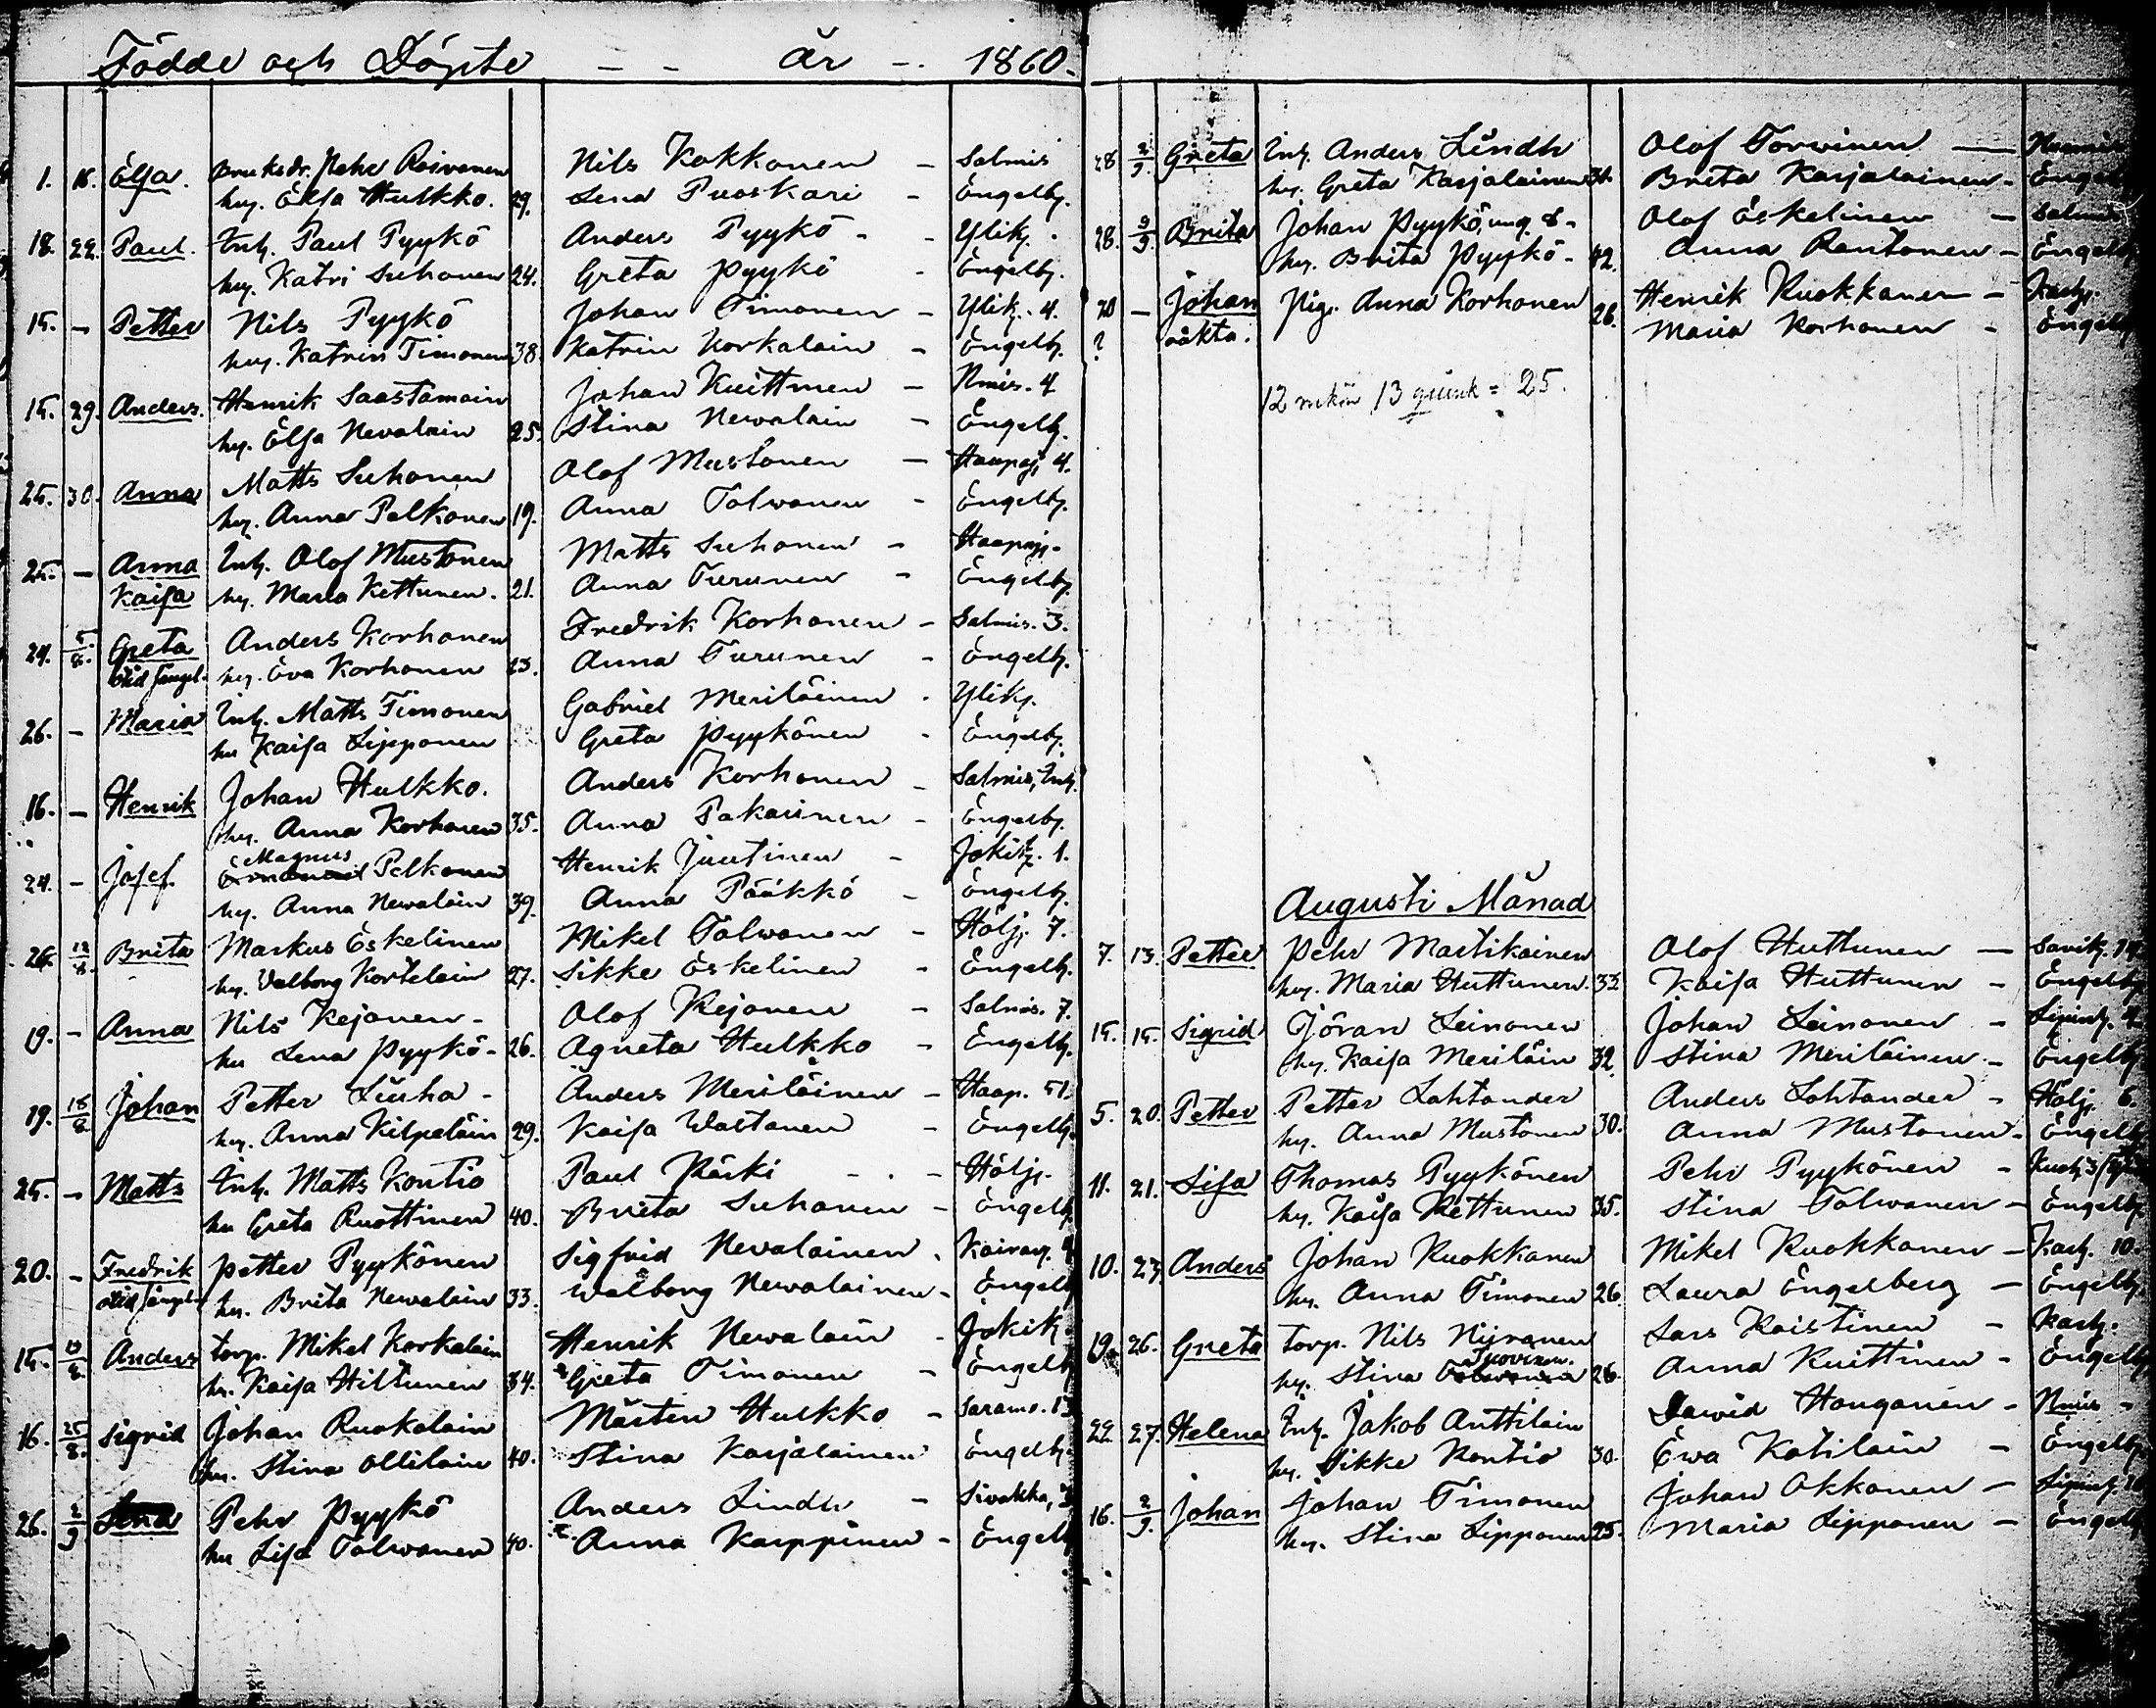 Födde och Döpte — — år — 1860.
1. 16. Elsa. Bruksdr. Pehr Roivanen Nils Kokkonen — Salmis
hu. Elsa Hulkko. 29. Lena Puoskari — Engelbg.
18. 22. Paul. Inh. Paul Pyykö Anders Pyykö — Ylik.
hu. Katri Suhonen 24. Greta Pyykö — Engelbg.
15. — Petter Nils Pyykö Johan Timonen — Ylik. 4.
hu. Katrin Timonen 38. Katrin Korkalain — Engelbg.
15. 29. Anders. Henrik Saastamoin Johan Kuittinen — Nmis. 4
hu. Elsa Nevalain 25. Stina Newalain — Engelbg.
25. 30. Anna Matts Suhonen Olof Mustonen — Haapaj. 4.
hu. Anna Pelkonen 19. Anna Tolwanen — Engelbg.
25. — Anna Inh. Olof Mustonen Matts Suhonen — Haapaj.
Kaisa hu. Maria Kettunen. 21. Anna Turunen — Engelbg.
24. 5/8. Greta Anders Korhonen Fredrik Korhonen — Salmis. 3.
hu. Eva Korhonen 23. Anna Turunen — Engelbg.
26. — Maria Inh. Matts Timonen Gabriel Meriläinen. Ylik.
hu Kaisa Lipponen Greta Pyykönen — Engelbg.
16. — Henrik Johan Hulkko. Anders Korhonen — Salmis, Inh.
hu. Anna Korhonen 35. Anna Pakarinen — Engelbg.
24. — Josef Magnus Pelkonen Henrik Juutinen — Jokik. 1.
hu. Anna Newalain 39. Anna Pääkkö — Engelbg.
26. 12/8 Brita Markus Eskelinen Mikel Tolwanen — Hölj. 7.
hu. Valborg Kortelain 27. Sikke Eskelinen — Engelbg.
19. — Anna Nils Kejonen — Olof Kejonen — Salmis. 7.
hu Lena Pyykö — 26. Agneta Hulkko — Engelbg.
19. 18/8 Johan Petter Liuha — Anders Meriläinen — Haap. 51.
hu. Anna Kilpeläin 29. Kaisa Wastanen — Engelbg.
25. — Matts Inh. Matts Kontio Paul Kärki — Hölj.
hu Greta Ruottinen 40. Brita Suhonen — Engelbg.
20. — Fredrik Petter Pyykönen Sigfrid Nevalainen. Koivaj. 4
hu. Brita Newalain 33. Walborg Newalainen — Engelb
15. 19/8. Anders torp. Mikel Korkalain Henrik Newalain — Jokik.
hu. Kaisa Hiltunen 34. Greta Timonen — Engelb
16. 25/8. Sigrid Johan Ruokolain Mårten Hulkko — Saramo. 13
hu. Stina Ollilain 40. Stina Karjalainen Engelbg.
26. 2/9 Lena Pehr Pyykö Anders Lindh — Sivakka,
hu Lisa Tolwanen 40. Anna Karppinen — Engelb
28 2/9. Greta Inh. Anders Lindh Olof Torvinen — Nurmis
hu. Greta Karjalainen 31. Brita Karjalainen — Engelb
28. 9/9. Brita Johan Pyykö, Olof Eskelinen — Salmis
hu. Brita Pyykö — 42. Anna Rantonen — Engelb
20 — Johan Pig. Anna Korhonen 26. Henrik Ruokkanen — Karh.
? oäkta. Maria Korhonen — Engelb
12 mkön 13 quink = 25.
Augusti Månad
7. 13. Petter Pehr Martikainen Olof Huttunen — Savik. 14
hu. Maria Huttunen. 33 Kaisa Huttunen — Engelbg
15. 15. Sigrid Jöran Leinonen Johan Leinonen — Lipink. 4
hu. Kaisa Meriläin 32. Stina Meriläinen — Engelbg
5. 20. Petter Petter Lohtander Anders Lohtander — Hölj. 6.
hu. Anna Mustonen 30. Anna Mustonen — Engelb
11. 21. Lisa Thomas Pyykönen Pehr Pyykönen — Karh. 3
hu. Kaisa Kettunen 35. Stina Tolwanen — Engelbg
10. 23 Anders Johan Ruokkanen Mikel Ruokkanen — Karh. 10.
hu. Anna Timonen 26. Laura Engelberg — Engelbg
19. 26. Greta Torp. Nils Niiranen Lars Koistinen — Karh.
hu. Stina Tuovinen 26. Anna Kuittinen — Engelb
22 27. Helena Inh. Jakob Anttilain Dawid Honganen — Nmis —
hu. Sikke Kontio 30. Ewa Kotilain — Engelbg
16. 2/9. Johan Johan Timonen Johan Okkonen — Lipink. 10
hu. Stina Lipponen 25. Maria Lipponen — Engelb